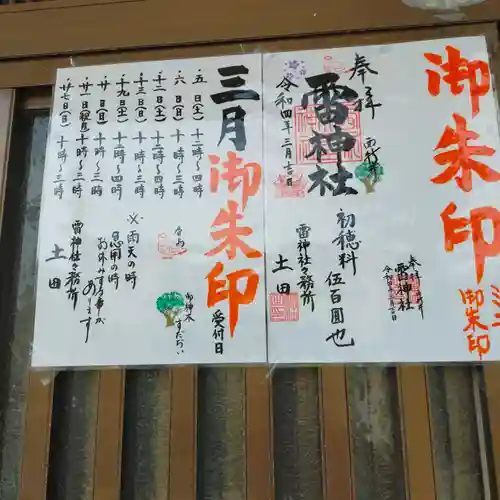 御朱印
奉拝
雷神社
令和四年三月吉日
雷神社々務所
土田
初穂料
伍百圓也
奉拝
雷神社
御朱印
三月
御朱印
受付日
五日(土)十二時〜四時
六日(日)十時〜三時
十二日(土)十二時〜四時
十三日(日)十時〜三時
十九日(土)十二時〜四時
廿日(日)十時〜三時
廿一日(祝)十時〜三時
廿七日(日)十時〜三時
※雨天の時
急用の時
お休みす事が
あります
雷神社々務所
土田
御神木
すだじい